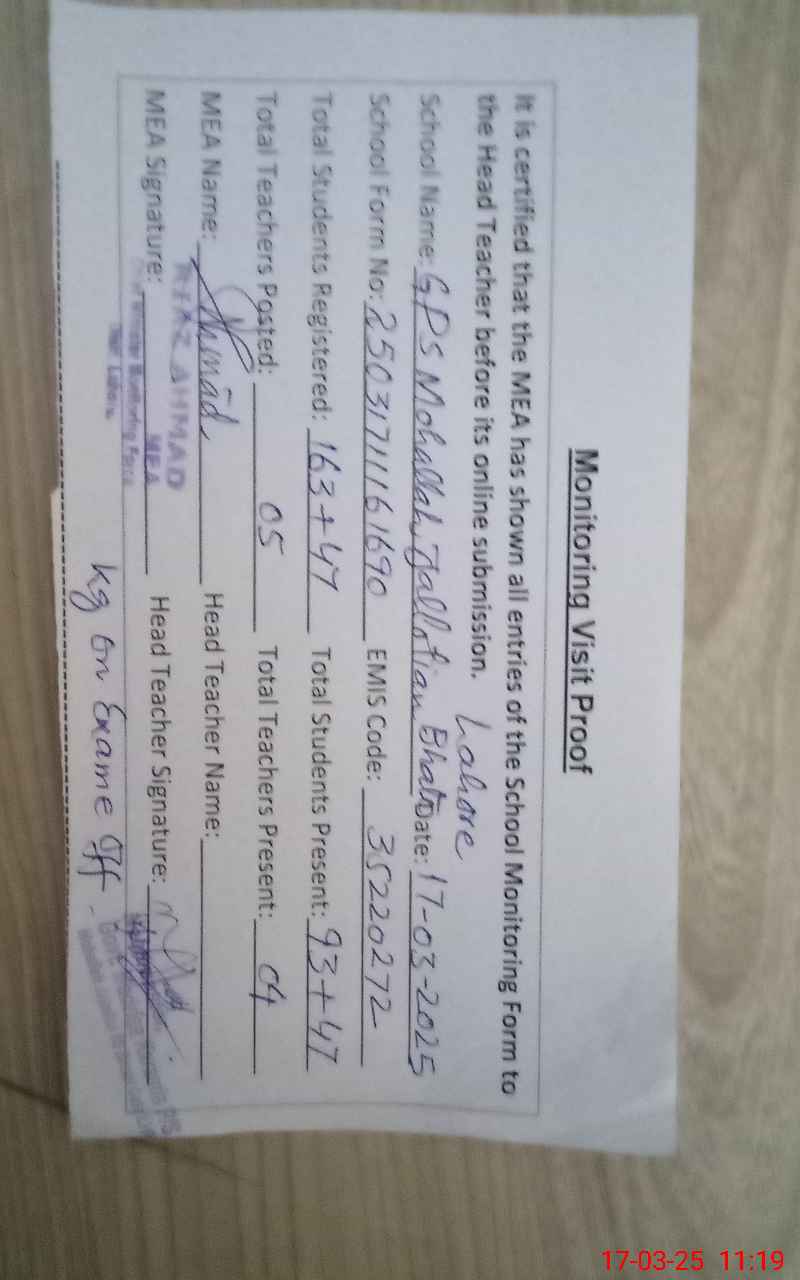 Monitoring Visit Proof
It is certified that the MEA has shown all entries of the School Monitoring Form to
the Head Teacher before its online submission.
Lahore
School Name: GPS Mohallah Jallotian Bhati Date: 17-03-2025
School Form No: 2503171116 1690 EMIS Code: 35220272
Total Students Registered: 163+47 Total Students Present: 93+47
Total Teachers Posted: 05 Total Teachers Present: 04
MEA Name: Ahmad Head Teacher Name:
RIAZ AHMAD
MEA
MEA Signature: Head Teacher Signature:
Chief Minister Monitoring Force
Distt. Lahore
kg on Exame Off
17-03-25 11:19